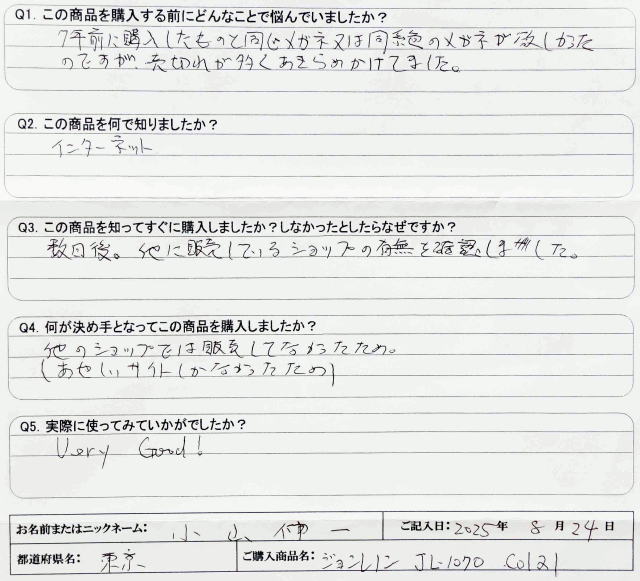 Q1. この商品を購入する前にどんなことで悩んでいましたか？
7年前に購入したものと同じメガネ又は同系色のメガネが欲しかった
のですが、売切れが多くあきらめかけてました。
Q2. この商品を何で知りましたか？
インターネット
Q3. この商品を知ってすぐに購入しましたか？しなかったとしたらなぜですか？
数日後。他に販売しているショップの有無を確認しました。
Q4. 何が決め手となってこの商品を購入しましたか？
他のショップでは販売してなかったため。
(あやしいサイトしかなかったため)
Q5. 実際に使ってみていかがでしたか？
Very Good!
お名前またはニックネーム： 小山 伸一 ご記入日：2025年 8月24日
都道府県名： 東京 ご購入商品名：ジョンレノン JL-1070 Col21